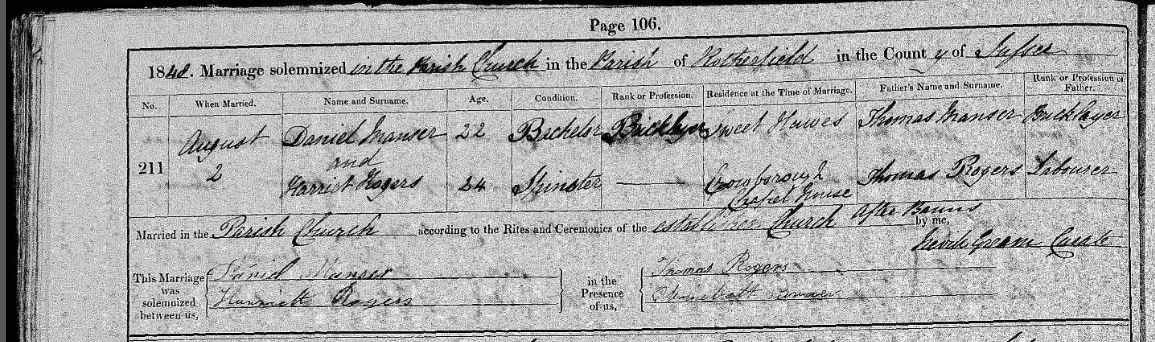 Page 106.
1848. Marriage solemnized in the Parish Church in the Parish of Rotherfield in the County of Sussex
No. When Married. Name and Surname. Age. Condition. Rank or Profession. Residence at the Time of Marriage. Father's Name and Surname. Rank or Profession of Father.
211 August 2 Daniel Manser 22 Bachelor Bricklayer Sweet Hawes Thomas Manser Bricklayer
and
Harriet Rogers 24 Spinster — Crowborough Chapel House Thomas Rogers Labourer
Married in the Parish Church according to the Rites and Ceremonies of the Church After Banns by me,
Curate
This Marriage was solemnized between us, Daniel Manser
Harriett Rogers
in the Presence of us, Thomas Rogers